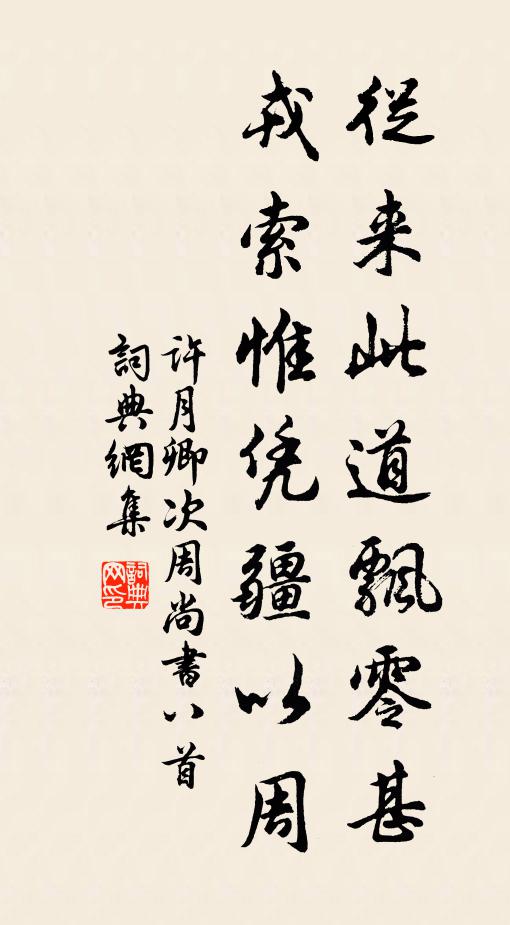 從来此道飄零甚
戎索惟凭疆以周
許月卿次周尚書八首
詞典網集
詞典網印